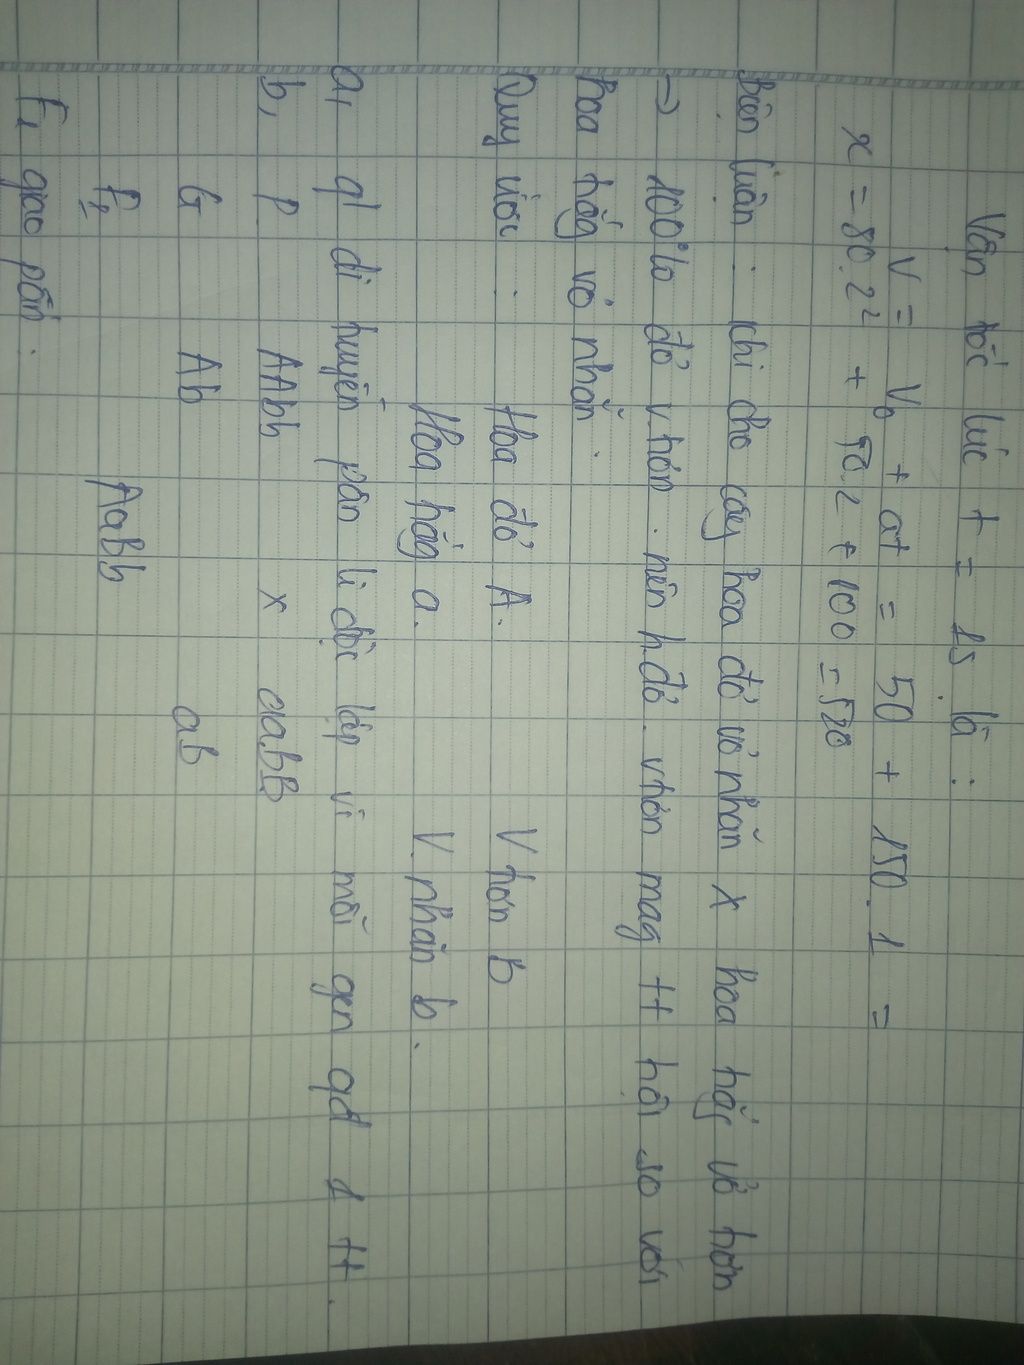 Vận tốc lúc t = 1s là :
V = V0 + at = 50 + 150 . 1 =
x = 80.2² + 50.2 + 100 = 520
Biện luận : khi cho cây hoa đỏ vỏ nhăn x hoa hồg vỏ trơn
=> 100% đỏ v.trơn . nên h.đỏ . v.trơn mag tt trội so với
hoa hồg vỏ nhăn .
Quy ước : Hoa đỏ A. V trơn B
Hoa hồg a. V. nhăn b.
a, ql di truyền pân li độc lập vì mỗi gen qđ 1 tt .
b, P AAbb x aaBB
G Ab aB
F1 AaBb
F1 gao pấn .